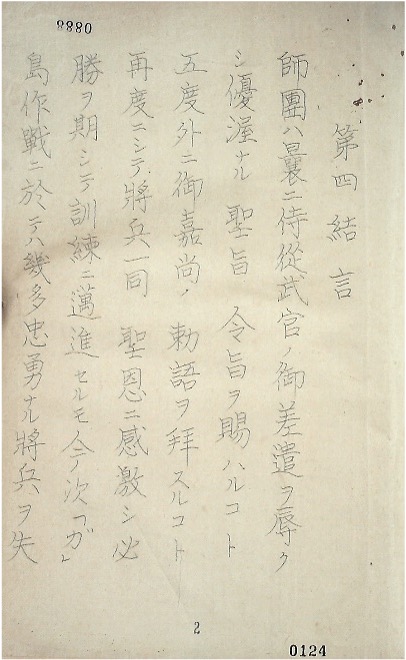 8880
第四 結言
師團ハ曩ニ侍從武官ノ御差遣ヲ辱ク
シ優渥ナル 聖旨 令旨ヲ賜ハルコト
五度外ニ御嘉尚ノ 勅語ヲ拜スルコト
再度ニシテ將兵一同 聖恩ニ感激シ必
勝ヲ期シテ訓練ニ邁進セルモ今次「ガ」
島作戰ニ於テハ幾多忠勇ナル將兵ヲ失
2
0124